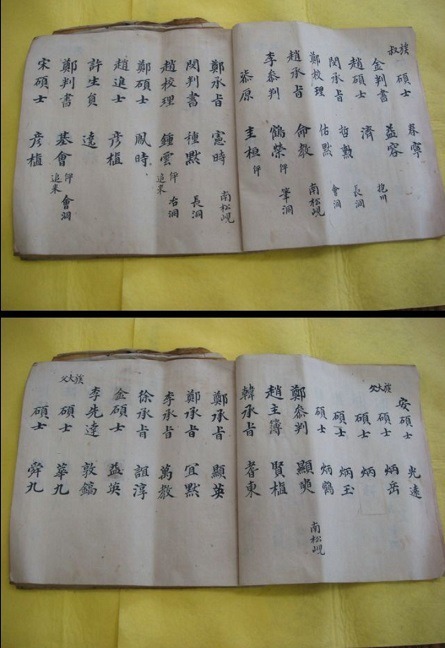 族叔 碩士 寧
金判書 益容 抱川
趙碩士 濟 長洞
閔承旨 哲勳 會洞
鄭校理 佑默 南松峴
趙承旨 命教
李參判 鶴榮 伻 筆洞
原 圭桓 伻
鄭承旨 憲時 南松峴
閔判書 種默 長洞
趙校理 鍾雲 伻 追来 右洞
鄭碩士 鳳時
趙進士 彦植
許生員 逵
鄭判書 基會 伻 追来 會洞
宋碩士 彦植
安碩士 光遠
族大父 碩士 炳岳
碩士 炳
碩士 炳玉
碩士 炳鶴
鄭參判 顯奭 南松峴
趙主簿 賢植
韓承旨 耆東
鄭承旨 顯英
鄭承旨 宜默
李承旨 萬教
徐承旨 誼淳
金碩士 益英
李先達 敦鎬
族大父 碩士 華九
碩士 舜九